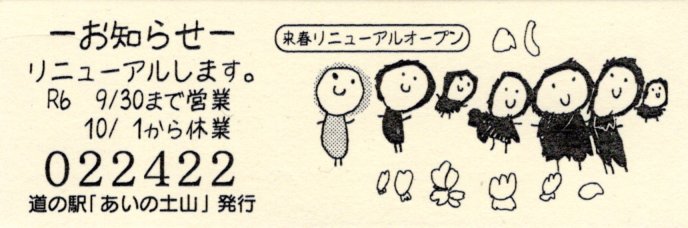 ーお知らせー
リニューアルします。
R6 9/30まで営業
10/1から休業
022422
道の駅「あいの土山」発行
来春リニューアルオープン